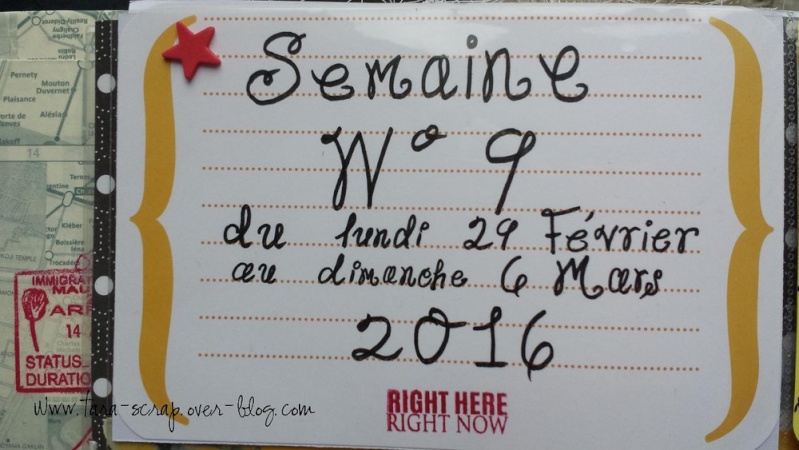 Semaine
N° 9
du lundi 29 Février
au dimanche 6 Mars
2016
RIGHT HERE
RIGHT NOW
www.tara-scrap.over-blog.com
Pernety
Mouton
Duvernet
Plaisance
Alésia
14
Kléber
Boissière
Trocadéro
IMMIGRA
MAU
ARR
14
STATUS
DURATIO